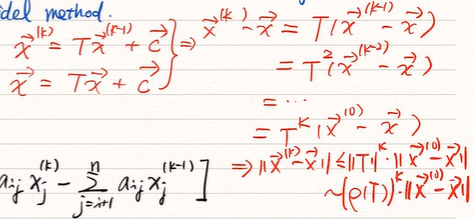 del method.
x⃗^(k) = Tx⃗^(k-1) + c⃗ } ⇒ x⃗^(k) - x⃗ = T(x⃗^(k-1) - x⃗)
x⃗ = Tx⃗ + c⃗
= T²(x⃗^(k-2) - x⃗)
= ...
= T^k(x⃗^(0) - x⃗)
a_ij x_j^(k) - ∑_{j=i+1}^n a_ij x_j^(k-1) ]
⇒ ||x⃗^(k) - x⃗|| ≤ ||T||^k · ||x⃗^(0) - x⃗||
~ (ρ(T))^k · ||x⃗^(0) - x⃗||